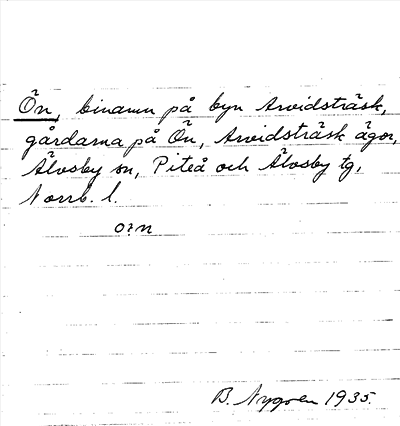 Ön, binamn på byn Arvidsträsk,
gårdarna på Ön, Arvidsträsk ägor,
Älvsby sn, Piteå och Älvsby tg,
Norrb. l.
o?n
B. Nygren 1935.